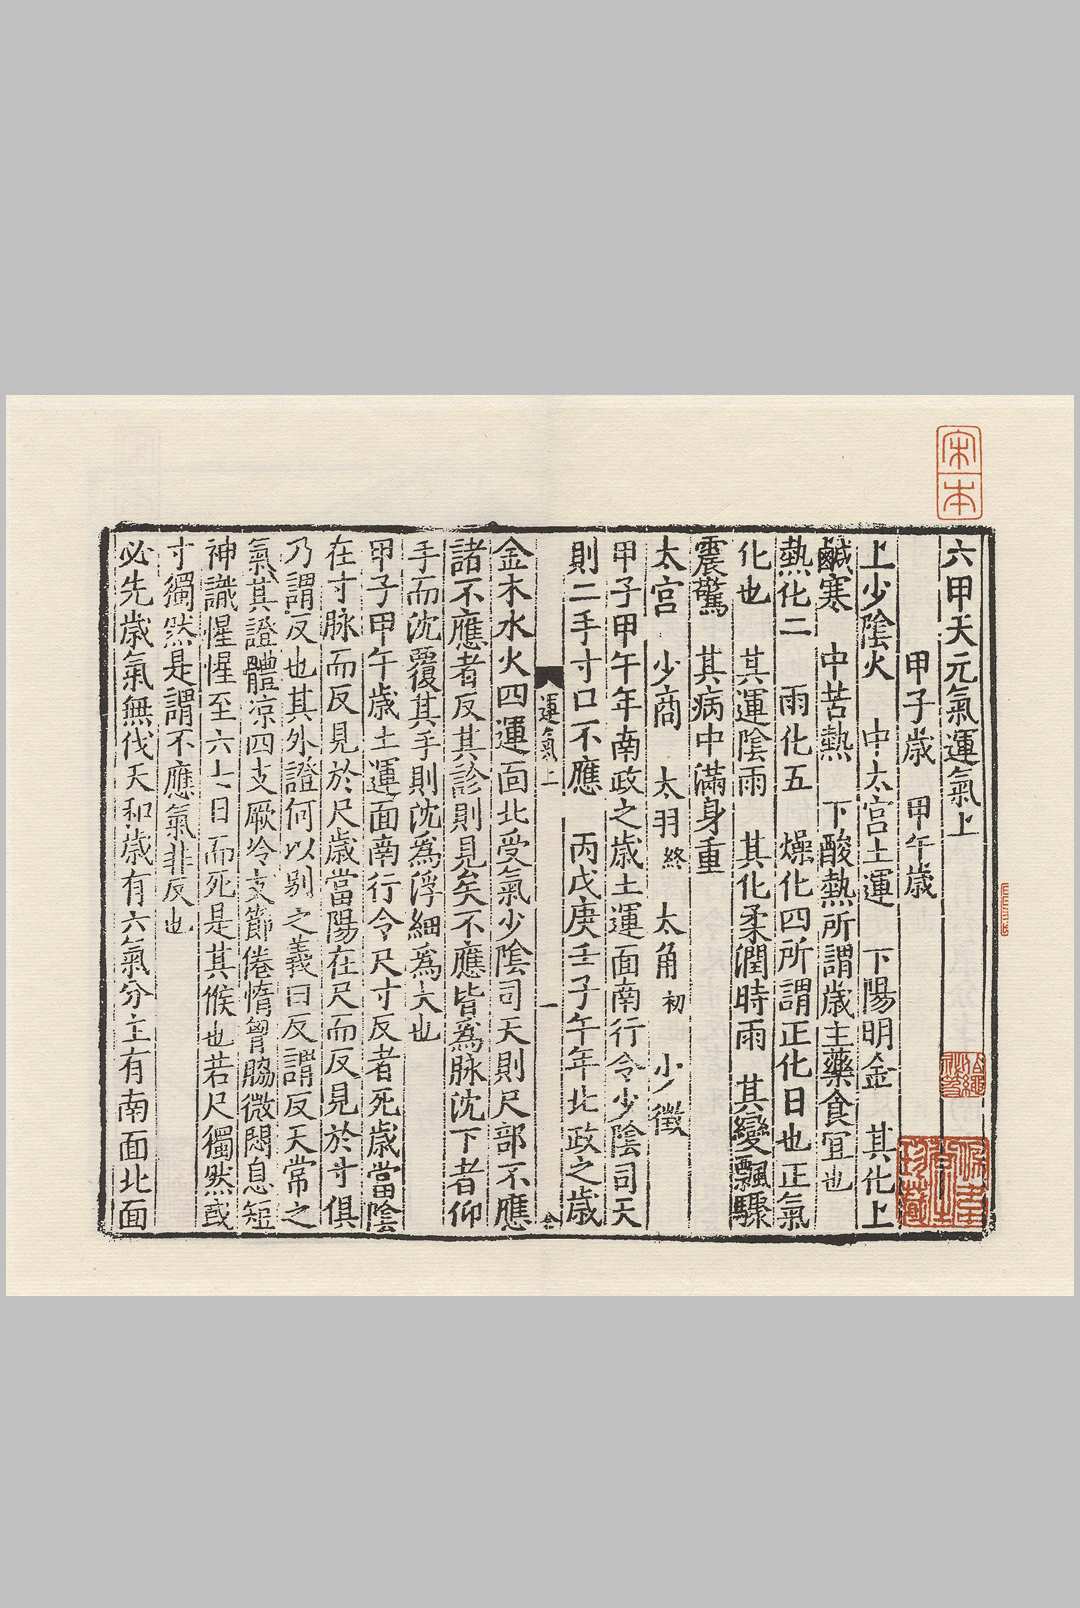 宋本
六甲天元氣運氣上
甲子歲　甲午歲
上少陰火　中太宮土運　下陽明金　其化上
鹹寒　中苦熱　下酸熱所謂歲主藥食宜也
熱化二　雨化五　燥化四所謂正化日也正氣
化也　其運陰雨　其化柔潤時雨　其變飄驟
震驚　其病中滿身重
太宮　少商　太羽終　太角初　少徵
甲子甲午年南政之歲土運面南行令少陰司天
則二手寸口不應　丙戊庚壬子午年北政之歲
運氣上　一
金木水火四運面北受氣少陰司天則尺部不應
諸不應者反其診則見矣不應皆爲脉沈下者仰
手而沈覆其手則沈爲浮細爲大也
甲子甲午歲土運面南行令尺寸反者死歲當陰
在寸脉而反見於尺歲當陽在尺而反見於寸俱
乃謂反也其外證何以别之義曰反謂反天常之
氣其證體凉四支厥冷支節倦惰胷脇微悶息短
神識惺惺至六七日而死是其候也若尺獨然或
寸獨然是謂不應氣非反也
必先歲氣無伐天和歲有六氣分主有南面北面